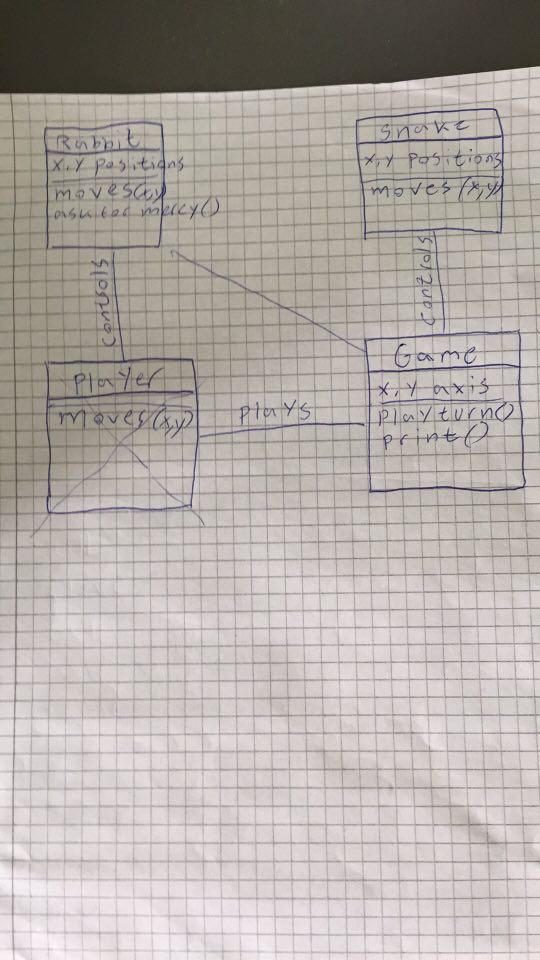 Rabbit
x,y positions
moves(x,y)
ask for mercy()
Snake
x,y positions
moves (x,y)
controls
controls
Player
moves(x,y)
plays
Game
x,y axis
playturn()
print()